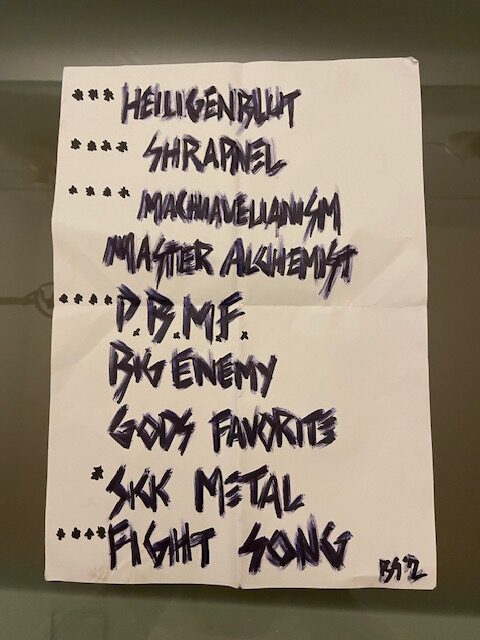 *** HEILIGENBLUT
**** SHRAPNEL
**** MACHIAVELIANISM
MASTER ALCHEMIST
**** P.B.M.F.
BIG ENEMY
GODS FAVORITE
* SICK METAL
**** FIGHT SONG